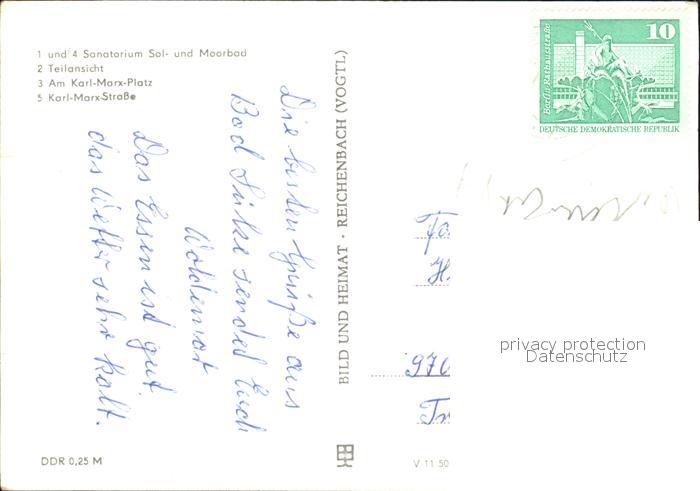 1 und 4 Sanatorium Sol- und Moorbad
2 Teilansicht
3 Am Karl-Marx-Platz
5 Karl-Marx-Straße
Die besten Grüße aus
Bad Sülze sendet Euch
Woldemar
Das Essen ist gut.
das Wetter sehr kalt.
DDR 0,25 M
BILD UND HEIMAT · REICHENBACH (VOGTL)
V 11 50
10
Berlin · Rathausstraße
DEUTSCHE DEMOKRATISCHE REPUBLIK
Fa
H.
970
privacy protection
Datenschutz